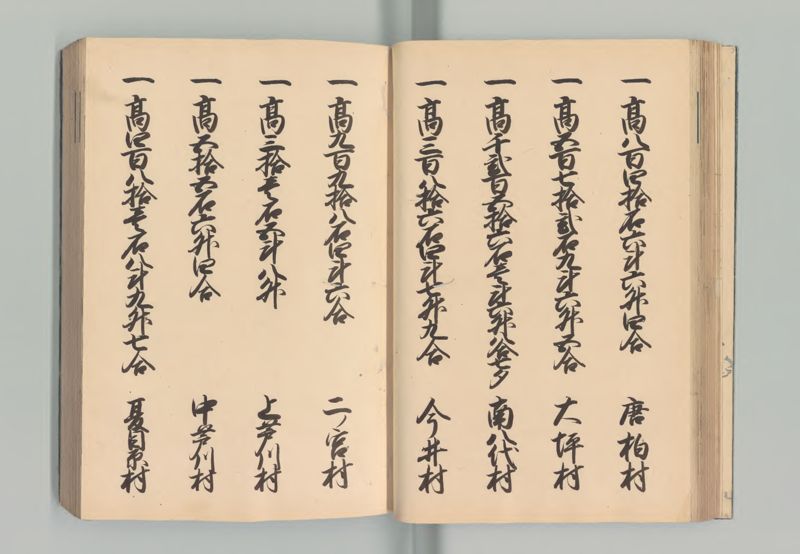 一 高八百四拾石六斗六升四合 唐柏村
一 高五百七拾弐石九斗六升五合 大坪村
一 高千弐百五拾六石壱斗三升八合七夕 南八代村
一 高三百八拾六石四斗七升九合 今井村
一 高九百九拾八石四斗六合 二ノ宮村
一 高三拾壱石五斗八升 上芦川村
一 高五拾五石六升四合 中芦川村
一 高四百八拾壱石八斗九升七合 夏目原村